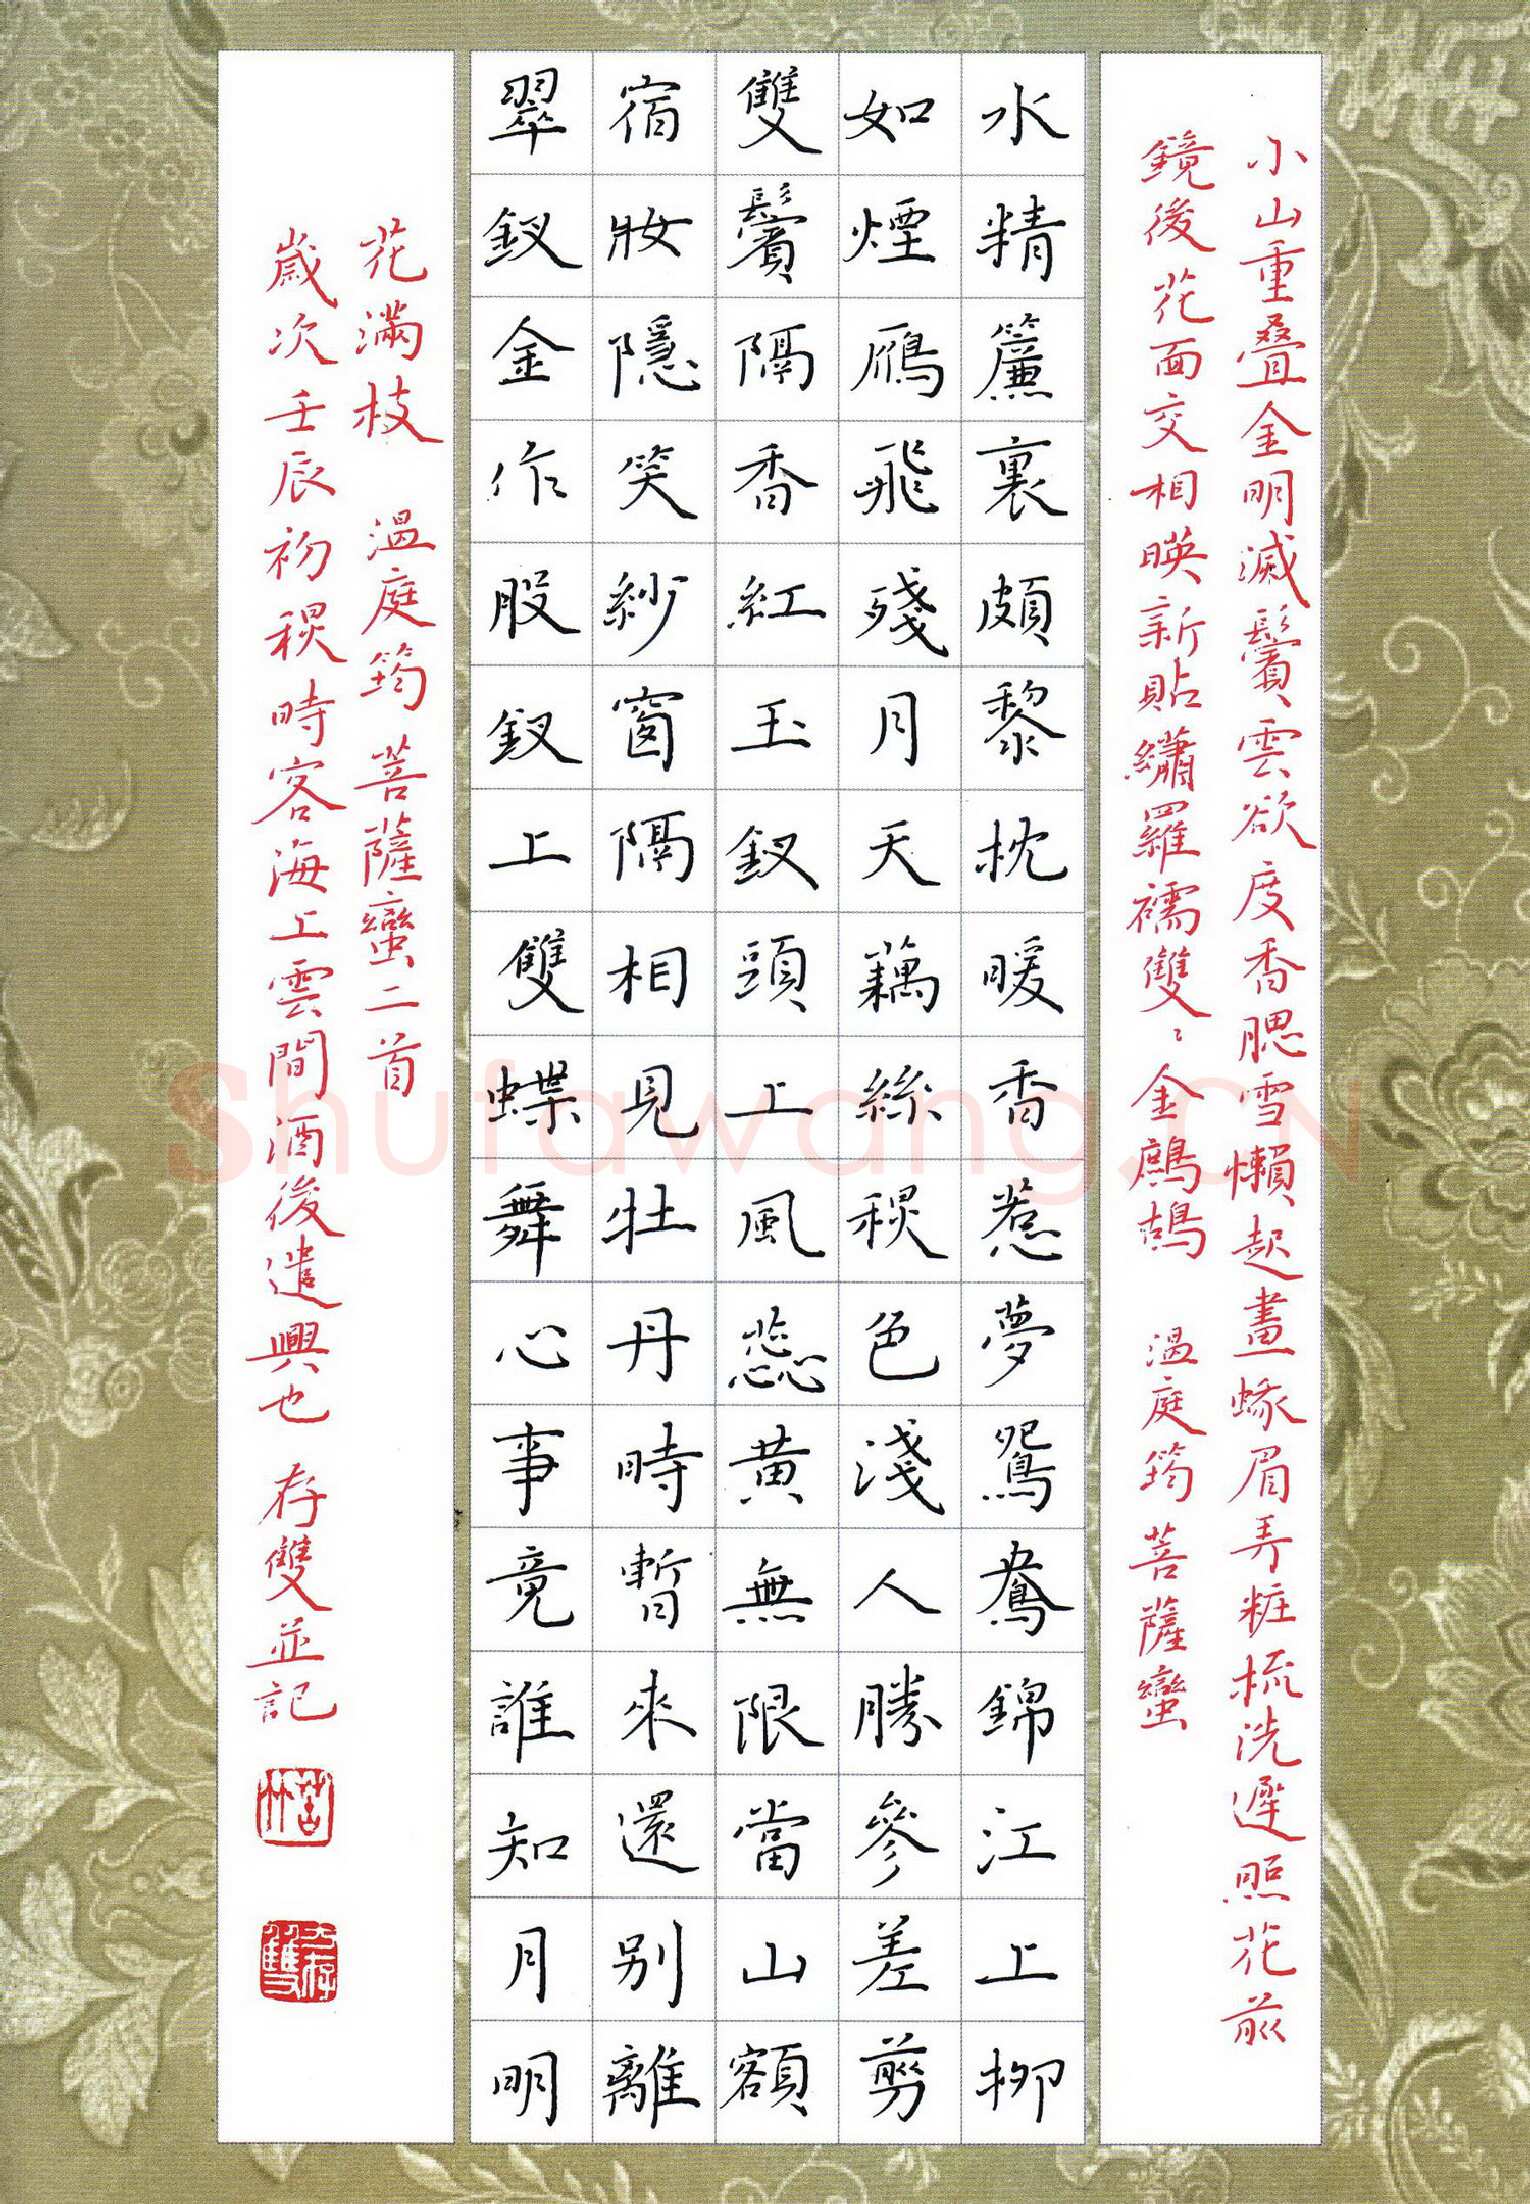 小山重叠金明滅鬢雲欲度香腮雪懶起畫蛾眉弄粧梳洗遲照花前
鏡後花面交相暎新貼繡羅襦雙〻金鷓鴣 溫庭筠菩薩蠻
水精簾裏頗黎枕暖香惹夢鴛鴦錦江上柳
如煙鴈飛殘月天藕絲秌色淺人勝參差剪
雙鬢隔香紅玉釵頭上風蕊黃無限當山額
宿妝隱笑紗窗隔相見牡丹時暫來還別離
翠釵金作股釵上雙蝶舞心事竟誰知月明
花滿枝 溫庭筠菩薩蠻二首
歲次壬辰初秌時客海上雲間酒後遣興也 存雙並記
Shufawang.CN